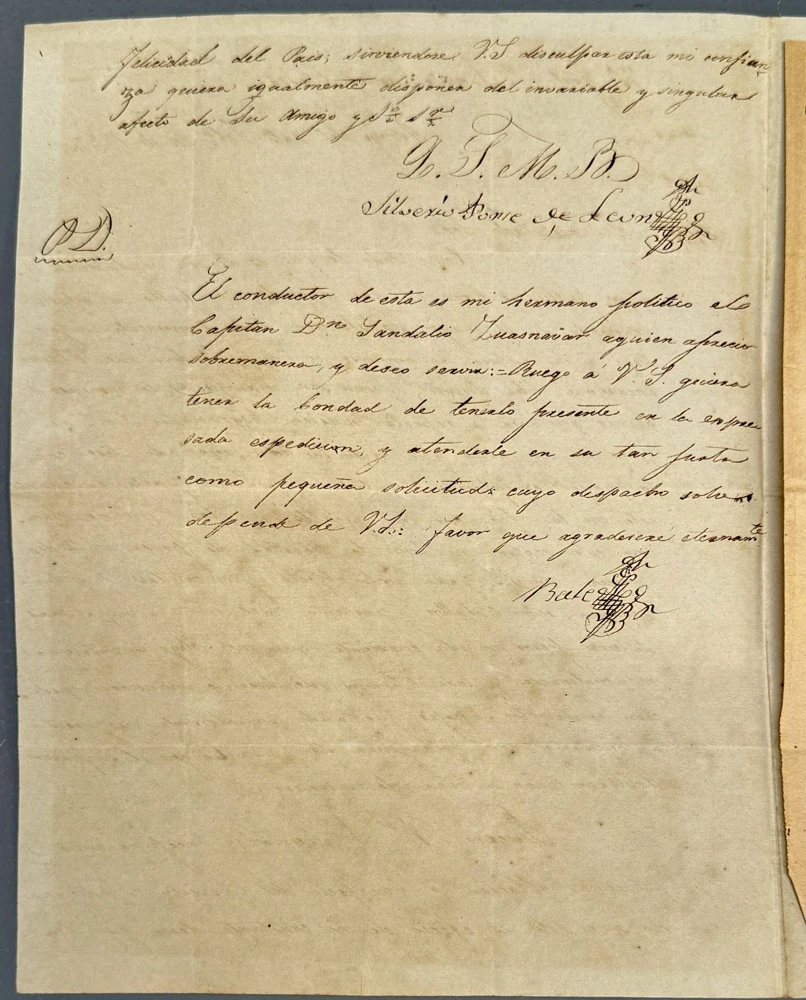 felicidad del Pais; sirviendose V.S. disculpar esta mi confian
za quiera igualmente disponer del invariable y singular
afecto de su Amigo y S.º S.ʳ
Q. S. M. B.
Silverio Ponce de Leon
P D.
El conductor de esta es mi hermano politico el
Capitan Dⁿ Sandalio Zuasnavar aquien aprecio
sobremanera, y deseo servir:=Ruego á V. S. quiera
tener la bondad de tenerlo presente en la expre
sada espedicion, y atenderle en su tan justa
como pequeña solicitud: cuyo despacho solo
depende de V.S.: favor que agradeceré eternamᵗᵉ
Vale